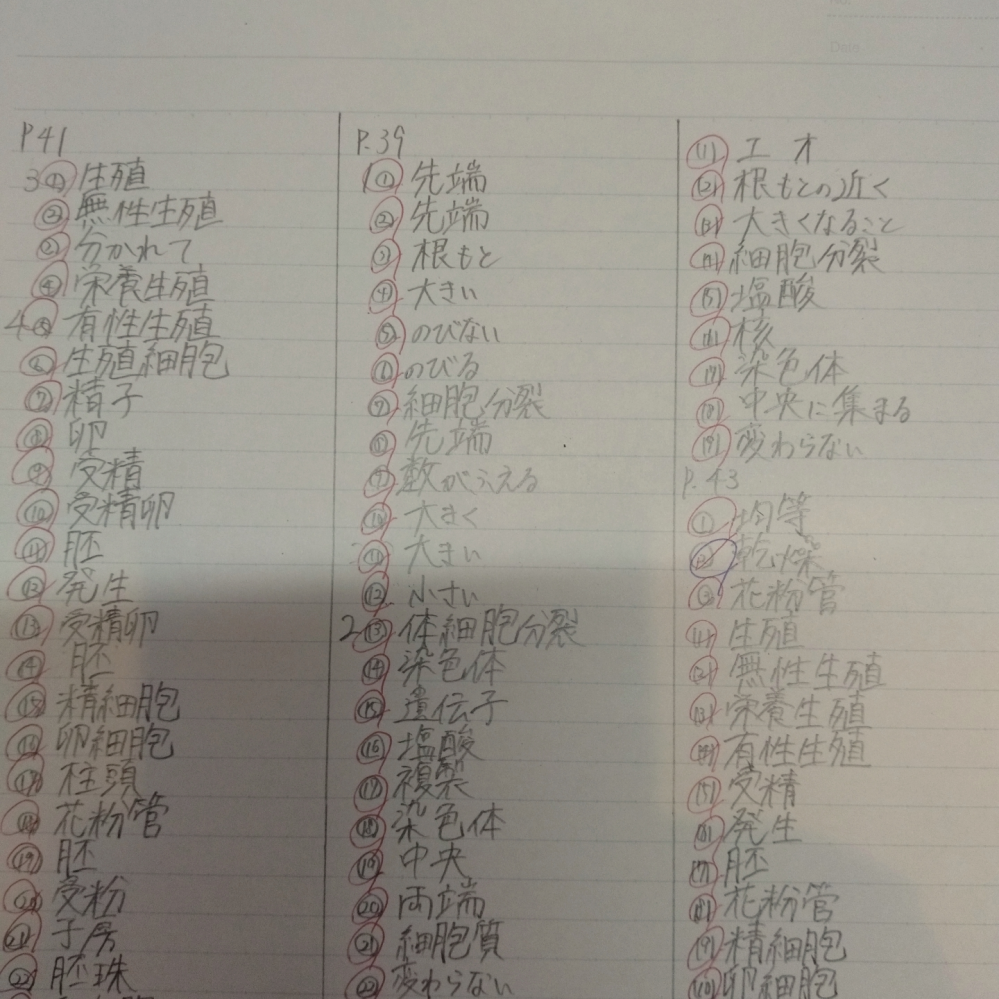 Date
P41
3 ① 生殖
② 無性生殖
③ 分かれて
④ 栄養生殖
4 ⑤ 有性生殖
⑥ 生殖細胞
⑦ 精子
⑧ 卵
⑨ 受精
⑩ 受精卵
⑪ 胚
⑫ 発生
⑬ 受精卵
⑭ 胚
⑮ 精細胞
⑯ 卵細胞
⑰ 柱頭
⑱ 花粉管
⑲ 胚
⑳ 受粉
㉑ 子房
㉒ 胚珠
P.39
1 ① 先端
② 先端
③ 根もと
④ 大きい
⑤ のびない
⑥ のびる
⑦ 細胞分裂
⑧ 先端
⑨ 数がふえる
⑩ 大きく
⑪ 大きい
⑫ 小さい
2 ⑬ 体細胞分裂
⑭ 染色体
⑮ 遺伝子
⑯ 塩酸
⑰ 複製
⑱ 染色体
⑲ 中央
⑳ 両端
㉑ 細胞質
㉒ 変わらない
(1) エ オ
(2) 根もとの近く
(3) 大きくなること
(4) 細胞分裂
(5) 塩酸
(6) 核
(7) 染色体
(8) 中央に集まる
(9) 変わらない
P.43
① 均等
② 乾燥
③ 花粉管
(1) 生殖
(2) 無性生殖
(3) 栄養生殖
(4) 有性生殖
(5) 受精
(6) 発生
(7) 胚
(8) 花粉管
(9) 精細胞
(10) 卵細胞